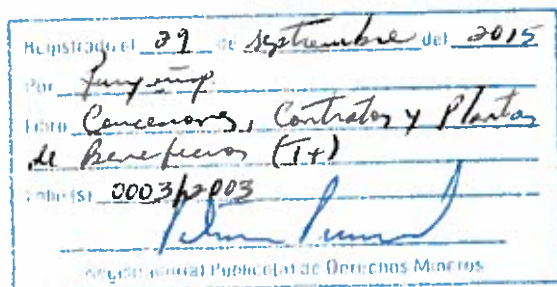 Registrado el 29 de septiembre del 2015
Por
Libro Concesiones, Contratos y Plantas
de Beneficios (T+)
Folio (s) 0003/2003
Público de Derechos Mineros